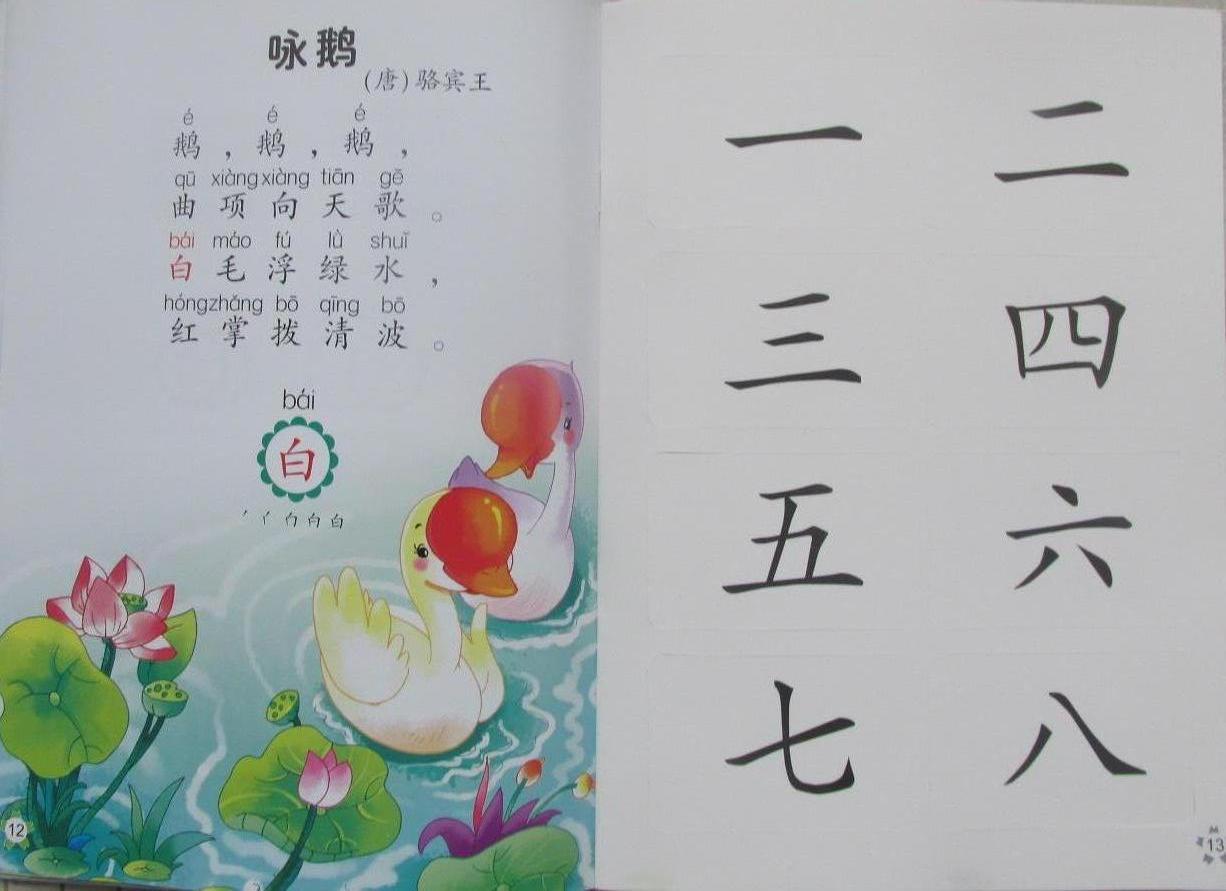 咏鹅
(唐)骆宾王
é é é
鹅，鹅，鹅，
qū xiàng xiàng tiān gē
曲项向天歌。
bái máo fú lǜ shuǐ
白毛浮绿水，
hóng zhǎng bō qīng bō
红掌拨清波。
bái
白
12
一 二
三 四
五 六
七 八
13